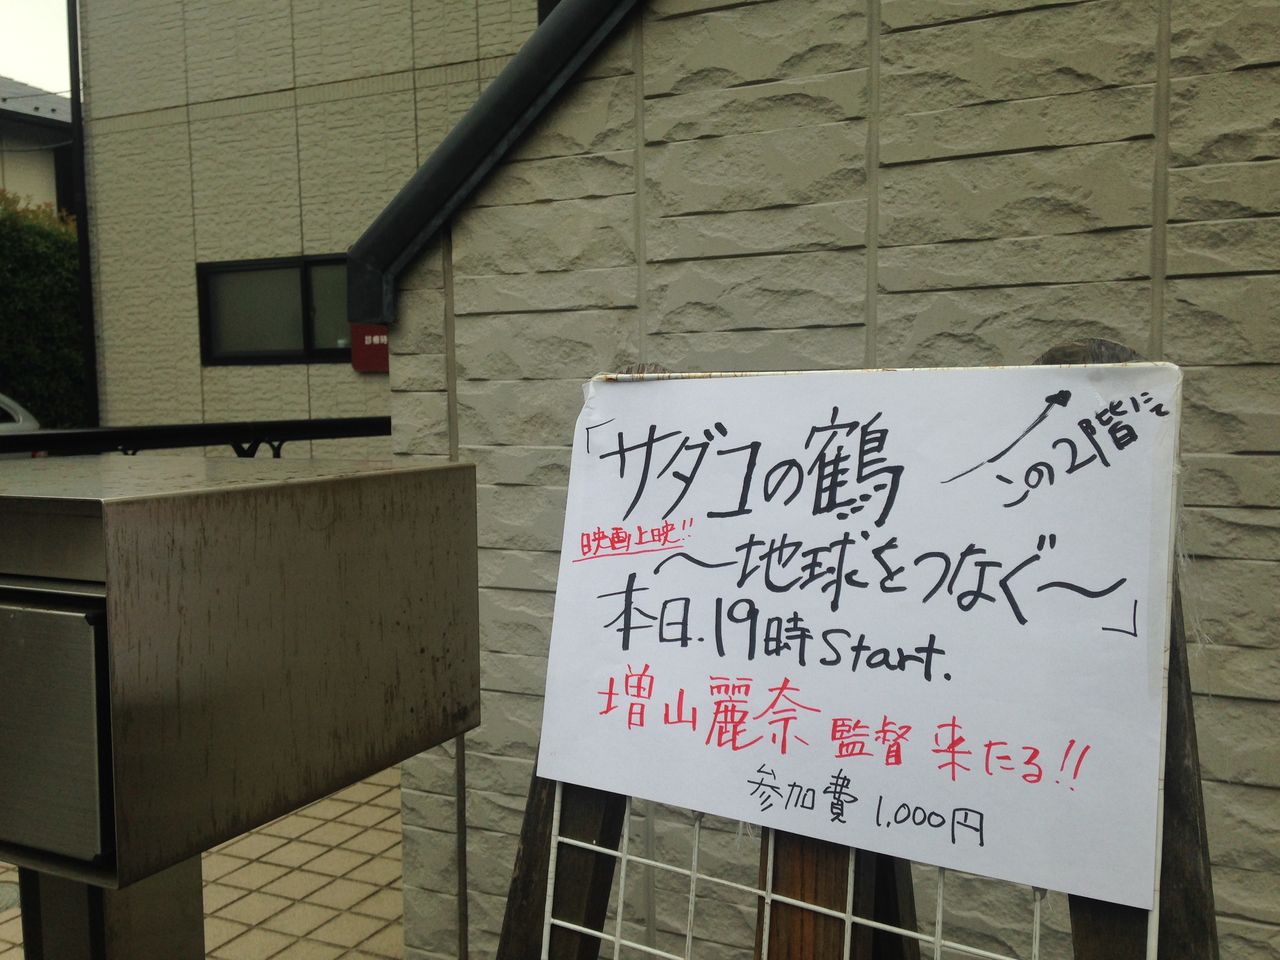 診療時
「サダコの鶴
この2階にて
映画上映!!
〜地球をつなぐ〜」
本日.19時Start.
増山麗奈 監督 来たる!!
参加費 1,000円